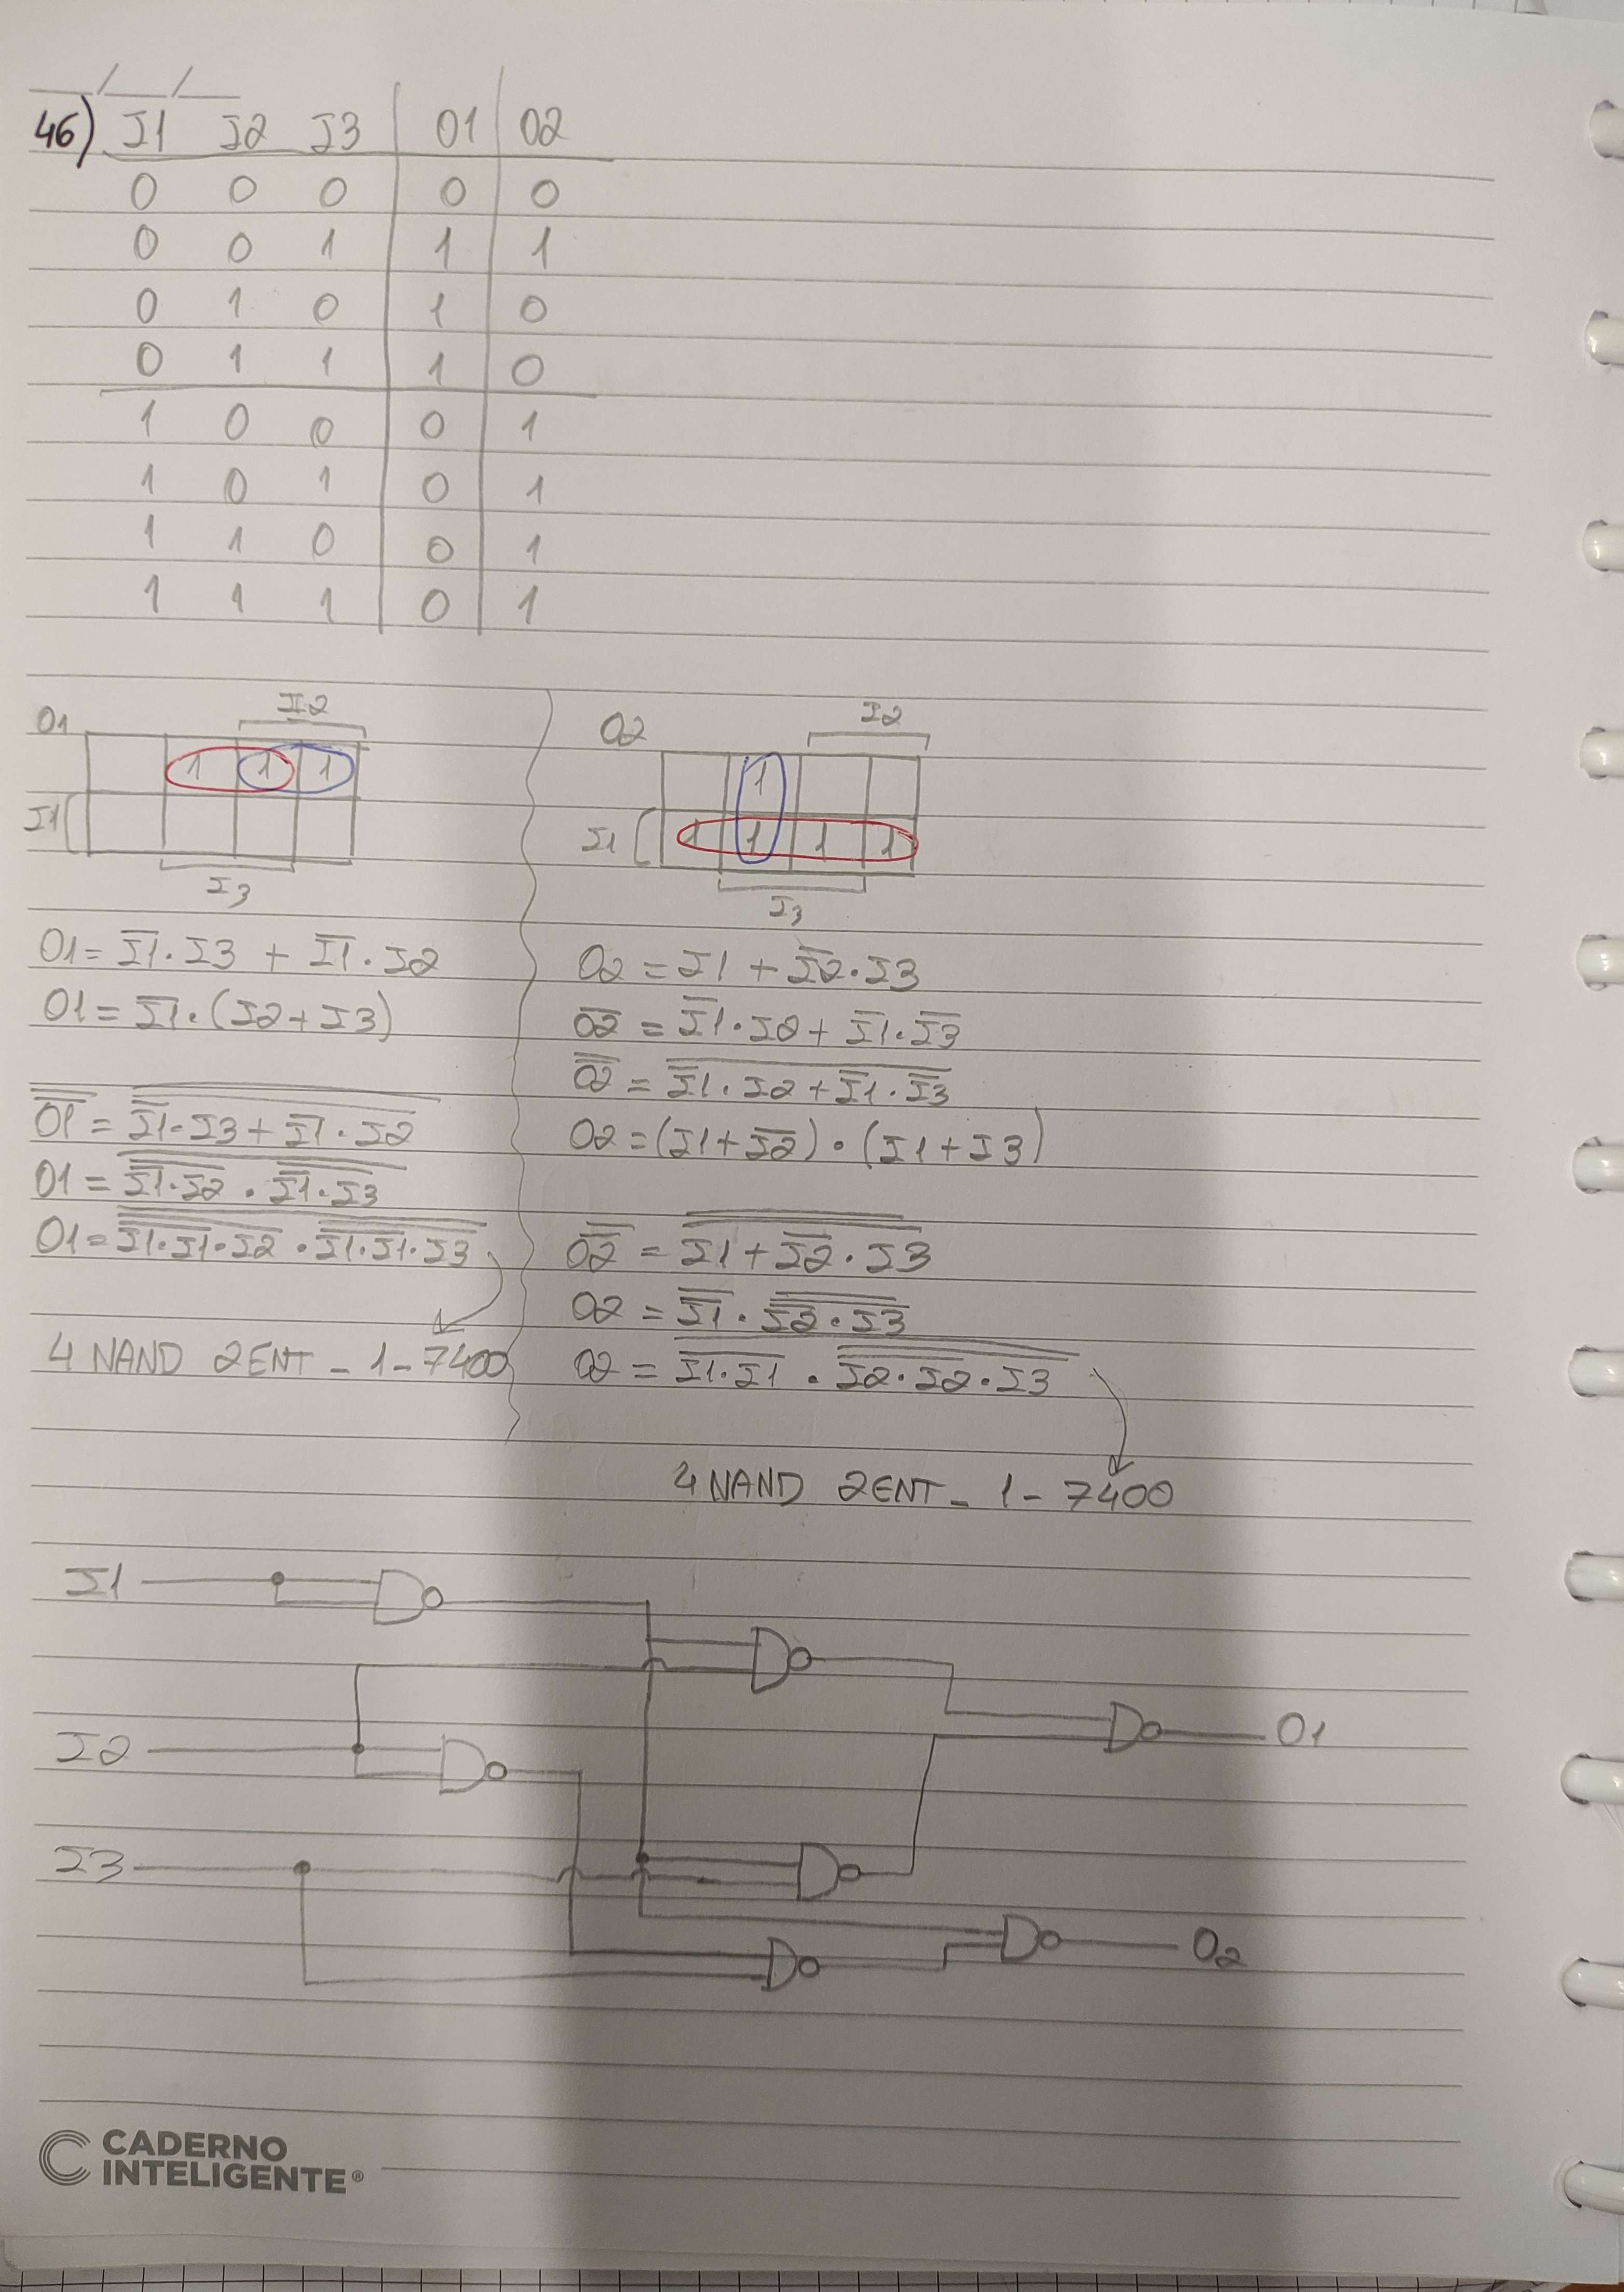 __/__/__
46) I1 I2 I3 O1 O2
0 0 0 0 0
0 0 1 1 1
0 1 0 1 0
0 1 1 1 0
1 0 0 0 1
1 0 1 0 1
1 1 0 0 1
1 1 1 0 1
O1 I2
1 1 1
I1
I3
O2 I2
1
I1 1 1 1 1
I3
O1 = I̅1̅·I3 + I̅1̅·I2
O1 = I̅1̅·(I2+I3)
O̿1̿ = \overline{\overline{\overline{I1}·I3 + \overline{I1}·I2}}
O1 = \overline{\overline{\overline{I1}·I2} · \overline{\overline{I1}·I3}}
O1 = \overline{\overline{\overline{I1·I1}·I2} · \overline{\overline{I1·I1}·I3}}
4 NAND 2ENT - 1 - 7400
O2 = I1 + I̅2̅·I3
O̅2̅ = I̅1̅·I2 + I̅1̅·I̅3̅
O̿2̿ = \overline{\overline{I1}·I2 + \overline{I1}·\overline{I3}}
O2 = (I1+I̅2̅)·(I1+I3)
O̿2̿ = \overline{\overline{I1 + \overline{I2}·I3}}
O2 = \overline{\overline{I1} · \overline{\overline{I2}·I3}}
O2 = \overline{\overline{I1·I1} · \overline{\overline{I2·I2}·I3}}
4 NAND 2ENT - 1 - 7400
I1
I2
O1
I3
O2
CADERNO
INTELIGENTE®